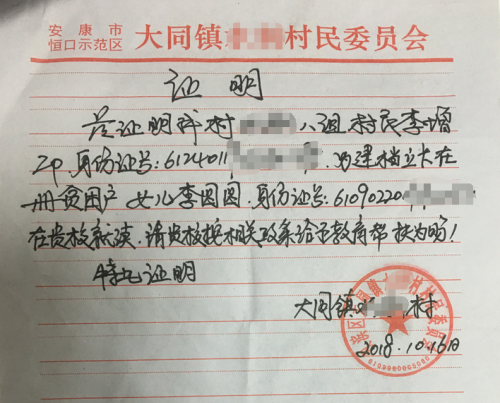 安康市
恒口示范区 大同镇 村民委员会
证明
兹证明我村 八组村民李增
平身份证号:6124011 为建档立卡在
册贫困户 女儿李圆圆.身份证号:61090220
在贵校就读.请贵校按相关政策给予教育帮扶为盼!
特此证明
大同镇 村
2018.10.16日